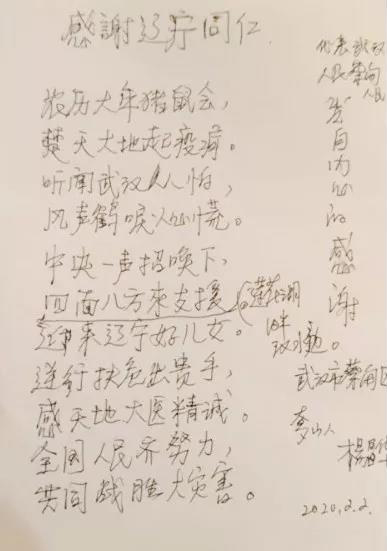 感謝辽宁同仁
农历大年猪鼠会，
楚天大地起疫病。
听闻武汉人人怕，
风声鹤唳人心慌。
中央一声招唤下，
四面八方来支援
迎来辽宁好儿女。
逆行扶危出贵手，
感天地大医精诚。
全国人民齐努力，
共同战胜大灾害。
莲花湖
代表武汉
人民蔡甸
人民
发自内心的感谢
武汉市蔡甸区
2020.2.2